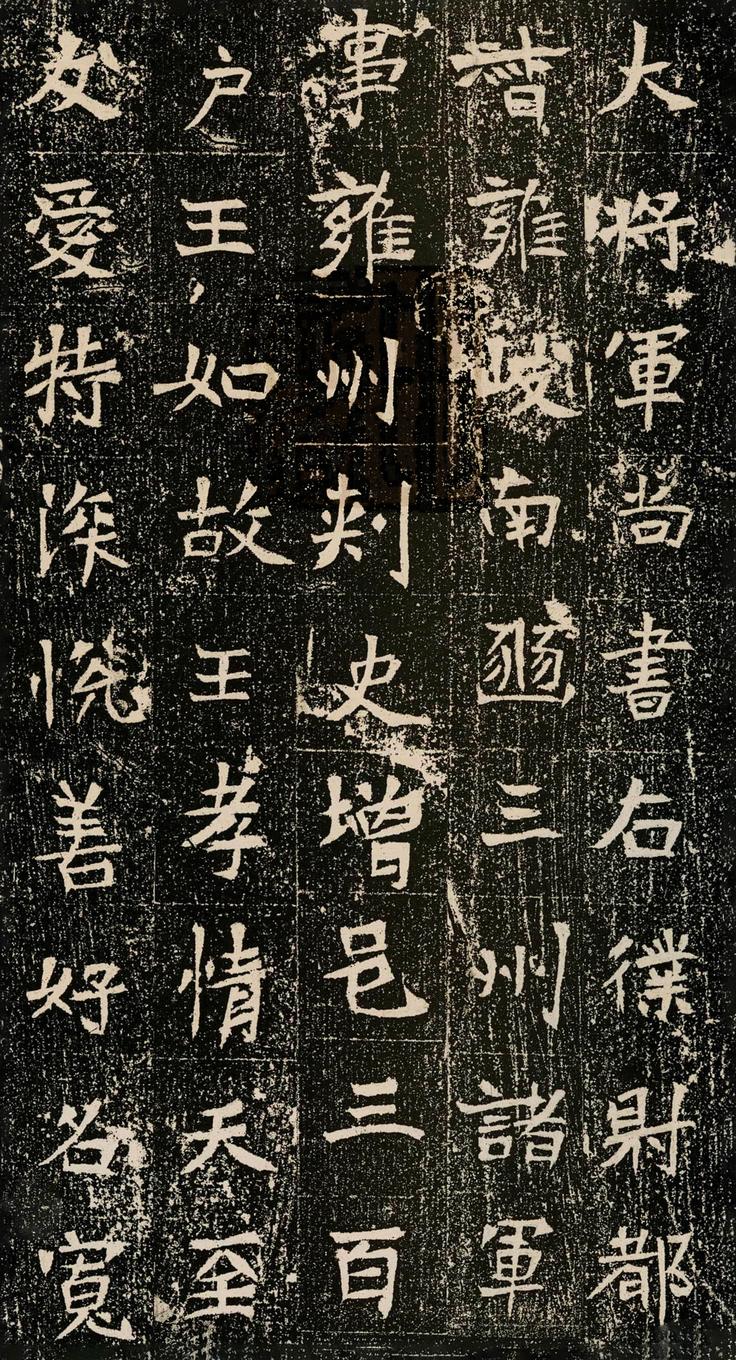 大將軍尚書右僕射都
督雍岐南豳三州諸軍
事雍州刺史增邑三百
户王如故王孝情天至
友愛特深悅善好名寬